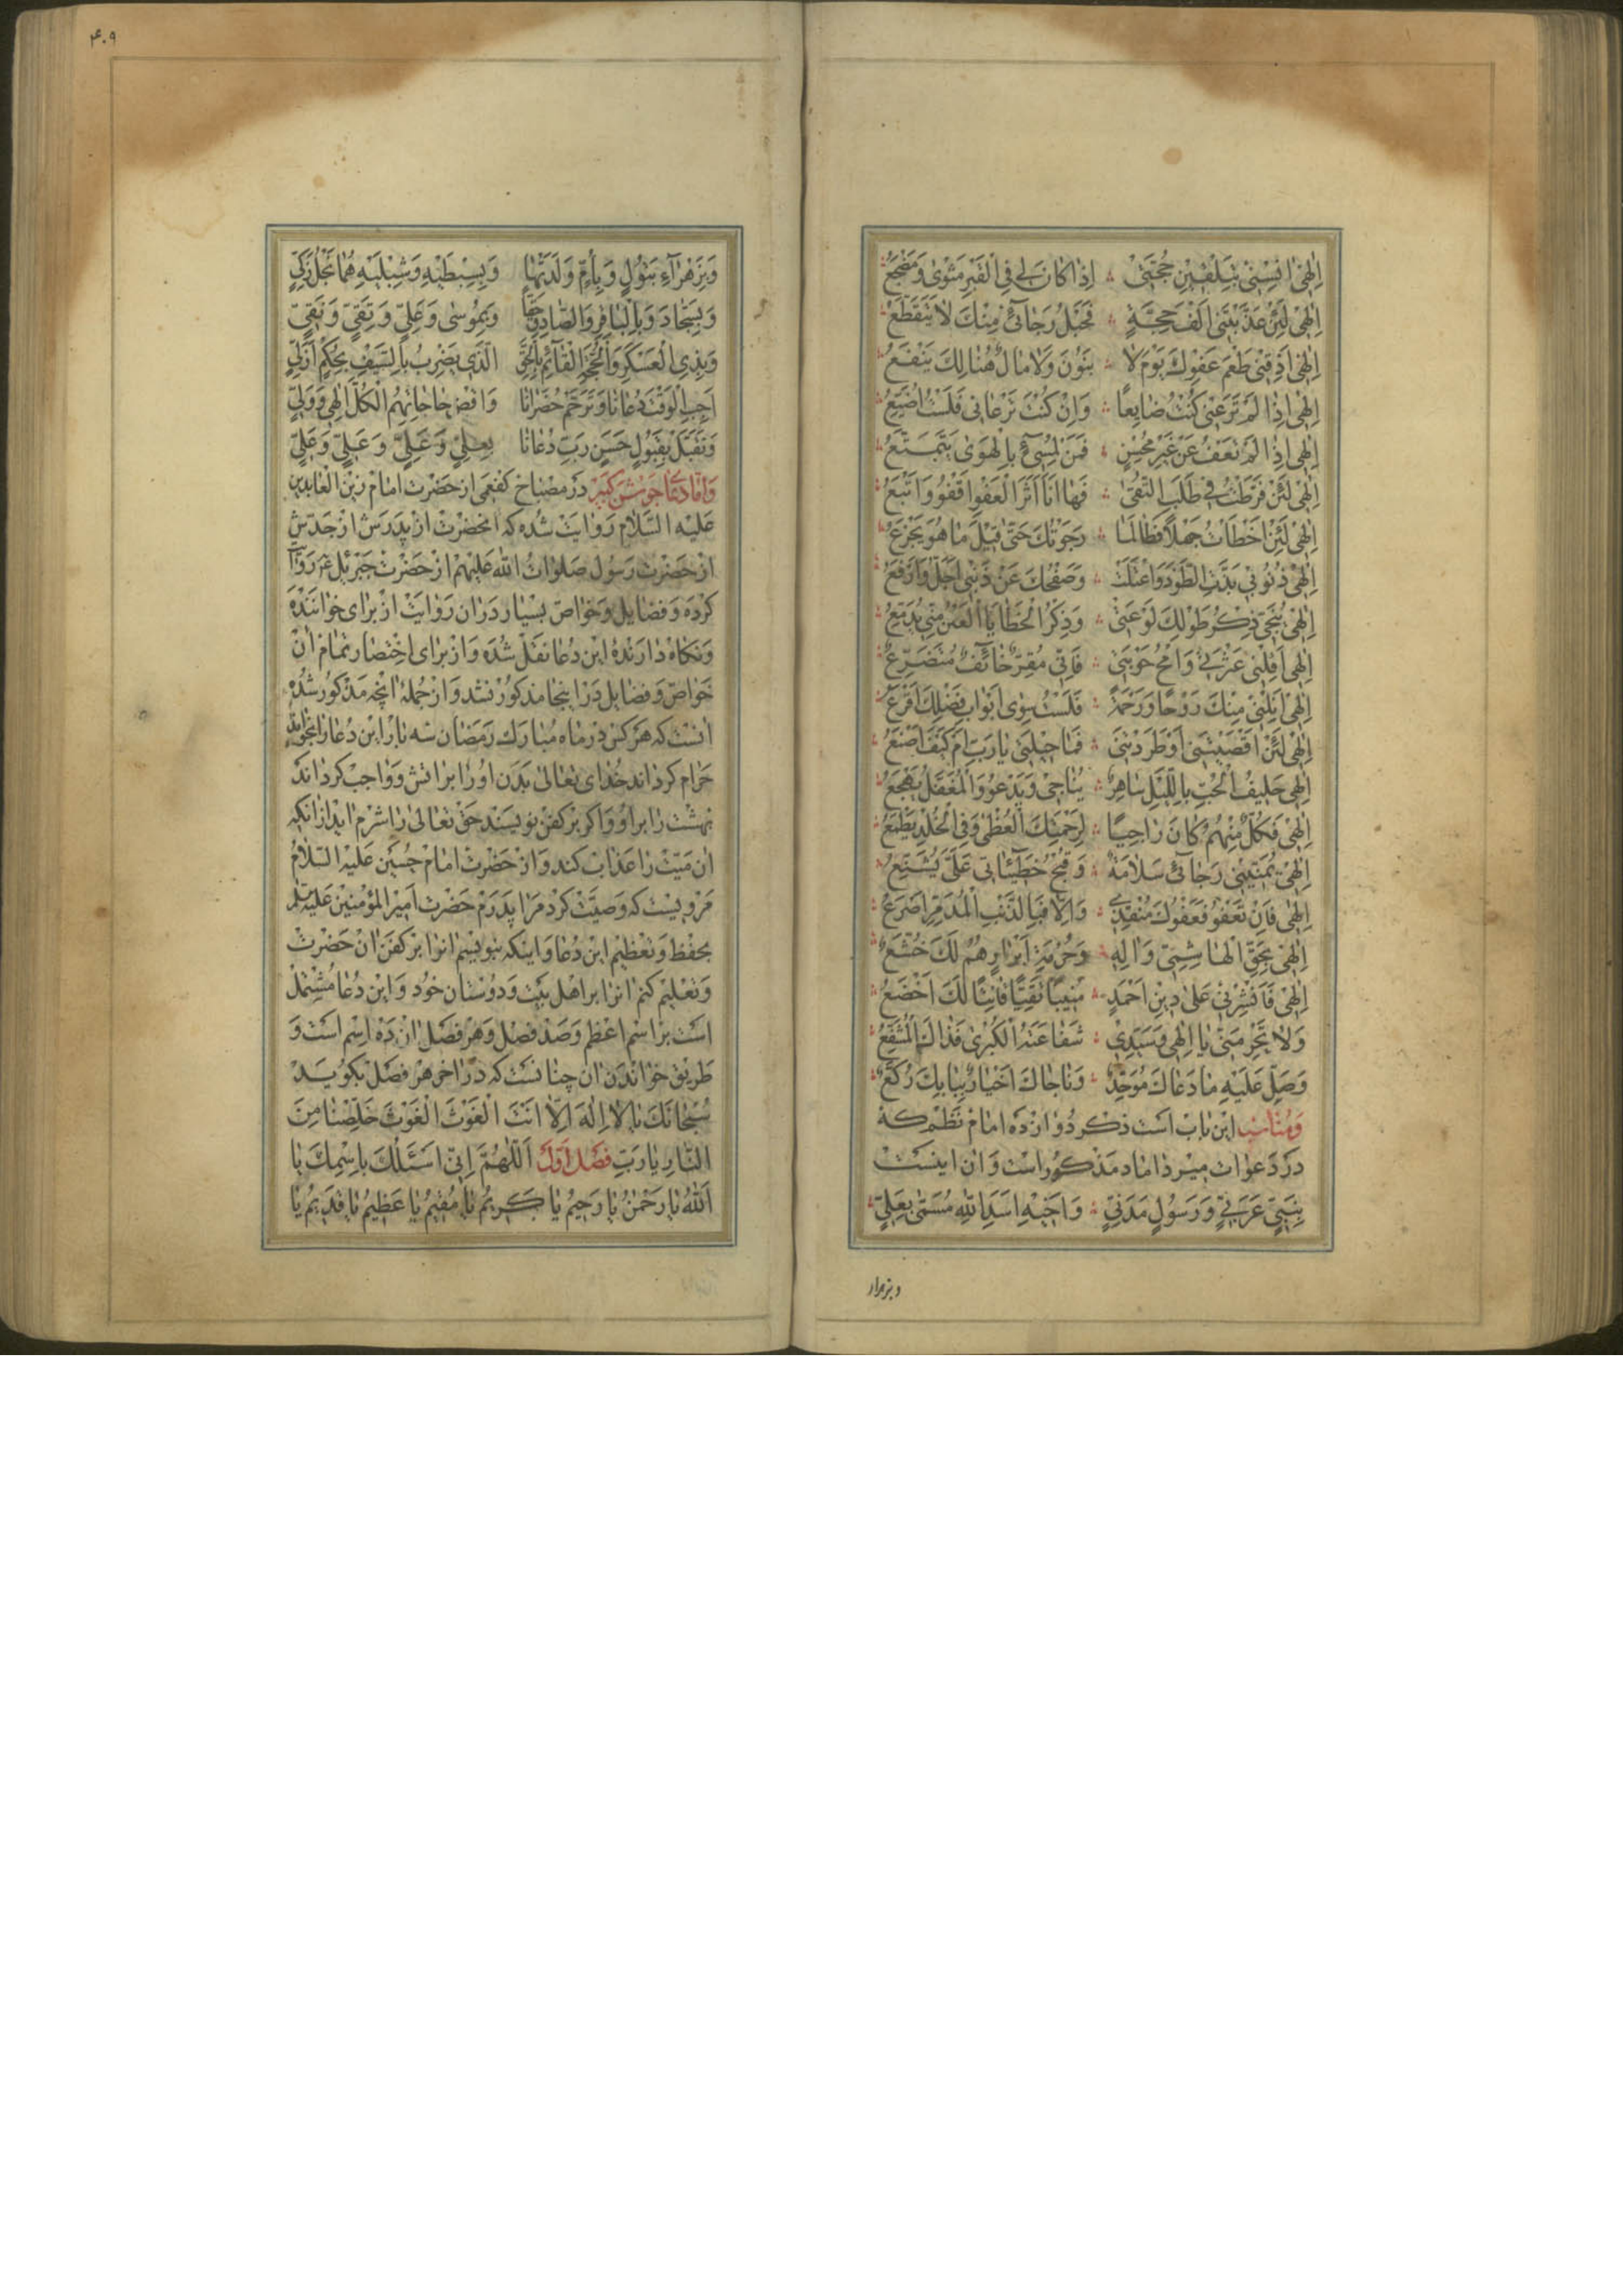 اِلٰهی اٰنِسْنی بِتَلْقینِ حُجَّتی ؞ اِذا کانَ لی فِی الْقَبْرِ مَثْویً وَ مَضْجَعٌ
اِلٰهی لَئِنْ عَذَّبْتَنی اَلْفَ حِجَّةٍ ؞ فَحَبْلُ رَجائی مِنْكَ لا یَتَقَطَّعُ
اِلٰهی اَذِقْنی طَعْمَ عَفْوِكَ یَوْمَ لا ؞ بَنُونَ وَلا مالٌ هُنالِكَ یَنْفَعُ
اِلٰهی اِذا لَمْ تَرْعَنی کُنْتُ ضایِعًا ؞ وَاِنْ کُنْتَ تَرْعانی فَلَسْتُ اُضَیَّعُ
اِلٰهی اِذا لَمْ تَعْفُ عَنْ غَیْرِ مُحْسِنٍ ؞ فَمَنْ لِمُسیءٍ بِالْهَوٰی یَتَمَتَّعُ
اِلٰهی لَئِنْ فَرَّطْتُ فی طَلَبِ التُّقیٰ ؞ فَها اَنَا اَثَرَ الْعَفْوِ اَقْفُو وَاَتْبَعُ
اِلٰهی لَئِنْ اَخْطَاْتُ جَهْلًا فَطالَما ؞ رَجَوْتُكَ حَتّیٰ قیلَ ما هُوَ یَجْزَعُ
اِلٰهی ذُنُوبی بَذَّتِ الطَّوْدَ وَاعْتَلَتْ ؞ وَصَفْحُكَ عَنْ ذَنْبی اَجَلُّ وَاَرْفَعُ
اِلٰهی یُنَجّی ذِکْرُ طَوْلِكَ لَوْعَتی ؞ وَذِکْرُ الْخَطایَا الْعَیْنَ مِنّی یُدَمِّعُ
اِلٰهی اَقِلْنی عَثْرَتی وَامْحُ حَوْبَتی ؞ فَاِنّی مُقِرٌّ خائِفٌ مُتَضَرِّعٌ
اِلٰهی اَنِلْنی مِنْكَ رَوْحًا وَرَحْمَةً ؞ فَلَسْتُ سِویٰ اَبْوابِ فَضْلِكَ اَقْرَعُ
اِلٰهی لَئِنْ اَقْصَیْتَنی اَوْ طَرَدْتَنی ؞ فَما حیلَتی یا رَبِّ اَمْ کَیْفَ اَصْنَعُ
اِلٰهی حَلیفُ الْحُبِّ بِاللَّیْلِ ساهِرٌ ؞ یُناجی وَیَدْعُو وَالْمُغَفَّلُ یَهْجَعُ
اِلٰهی فَکُلٌّ مِنْهُمُ کانَ راجِیًا ؞ لِرَحْمَتِكَ الْعُظْمیٰ وَفِی الْخُلْدِ یَطْمَعُ
اِلٰهی یُمَنّینی رَجائی سَلامَةً ؞ وَقُبْحُ خَطیئاتی عَلَیَّ یُشَنِّعُ
اِلٰهی فَاِنْ تَعْفُو فَعَفْوُكَ مُنْقِذی ؞ وَاِلّا فَبِالذَّنْبِ الْمُدَمِّرِ اُصْرَعُ
اِلٰهی بِحَقِّ الْهاشِمِیِّ وَاٰلِهِ ؞ وَحُرْمَةِ اَبْرارٍ هُمُ لَكَ خُشَّعٌ
اِلٰهی فَانْشُرْنی عَلیٰ دینِ اَحْمَدٍ ؞ مُنیبًا تَقِیًّا قانِتًا لَكَ اَخْضَعُ
وَلا تَحْرِمَنّی یا اِلٰهی وَسَیِّدی ؞ شَفاعَتَهُ الْکُبْریٰ فَذاكَ الْمُشَفَّعُ
وَصَلِّ عَلَیْهِ ما دَعاكَ مُوَحِّدٌ ؞ وَناجاكَ اَخْیارٌ بِبابِكَ رُکَّعٌ
وَمُناسِب این باب است ذکر دُوازده امام نظم که
در دعوات میرداماد مذکور است و ان اینست
بِنَبِیٍّ عَرَبِیٍّ وَرَسُولٍ مَدَنِیٍّ ؞ وَاَخیهِ اَسَدِ اللّٰهِ مُسَمّیٰ بِعَلِیٍّ
وبزهراء
۴۰۹
وَبِزَهْراءِ بَتُولٍ وَبِاُمٍّ وَلَدَتْها وَبِسِبْطَیْهِ وَشِبْلَیْهِ هُما نَجْلُ زَکِیٍّ
وَبِسَجّادَ وَبِالْباقِرِ وَالصّادِقِ حَقًّا وَبِمُوسیٰ وَعَلِیٍّ وَتَقِیٍّ وَنَقِیٍّ
وَبِذِی الْعَسْکَرِ وَالْحُجَّةِ الْقائِمِ بِالْحَقِّ الَّذی یَضْرِبُ بِالسَّیْفِ بِحُکْمٍ اَزَلِیٍّ
اَجِبِ الْوَقْتَ دُعانا وَتَرَحَّمْ حُضَرانا وَاقْضِ حاجاتِهِمُ الْکُلَّ اِلٰهی وَوَلِیّ
وَتَقَبَّلْ بِقَبُولٍ حَسَنٍ رَبِّ دُعانا بِعَلِیٍّ وَعَلِیٍّ وَعَلِیٍّ وَعَلِیٍّ
وَامّا دعا جوشن کبیر در مصباح کفعمی از حضرت امام زین العابدین
علیه السّلام روایت شده که انحضرت از پدرش از جدّش
از حضرت رسول صلوات الله علیهم از حضرت جبرئل ع روایت
کرده و فضایل و خواصّ بسیار در ان روایت از برای خواننده
و نکاه دارندهٔ این دعا نقل شده و از برای اختصار تمام ان
خواصّ و فضایل در اینجا مذکور نشد و از جملهٔ انچه مذکور شده
انست که هر کس در ماه مبارك رمضان سه بار این دعا را بخواند
حرام کرداند خدای تعالی بدن او را بر اتش و واجب کرداند
بهشت را بر او و اکر بر کفن نویسند حق تعالی را شرم اید از انکه
ان میّت را عذاب کند و از حضرت امام حسین علیه السّلام
مرویست که وصیّت کرد مرا پدرم حضرت امیر المؤمنین علیه سلم
بحفظ و تعظیم این دعا و اینکه بنویسم انرا بر کفن ان حضرت
و تعلیم کنم انرا بر اهل بیت و دوستان خود و این دعا مشتمل
است بر اسم اعظم و صد فصل و هر فصل از ده اسم است و
طریق خواندن ان چنانست که در اخر هر فصل بکوید
سُبْحانَكَ یا لا اِلٰهَ اِلّا اَنْتَ الْغَوْثَ الْغَوْثَ خَلِّصْنا مِنَ
النّارِ یا رَبِّ فصل اوّل اَللّٰهُمَّ اِنّی اَسْئَلُكَ بِاسْمِكَ یا
اَللّٰهُ یا رَحْمٰنُ یا رَحیمُ یا کَریمُ یا مُقیمُ یا عَظیمُ یا قَدیمُ یا